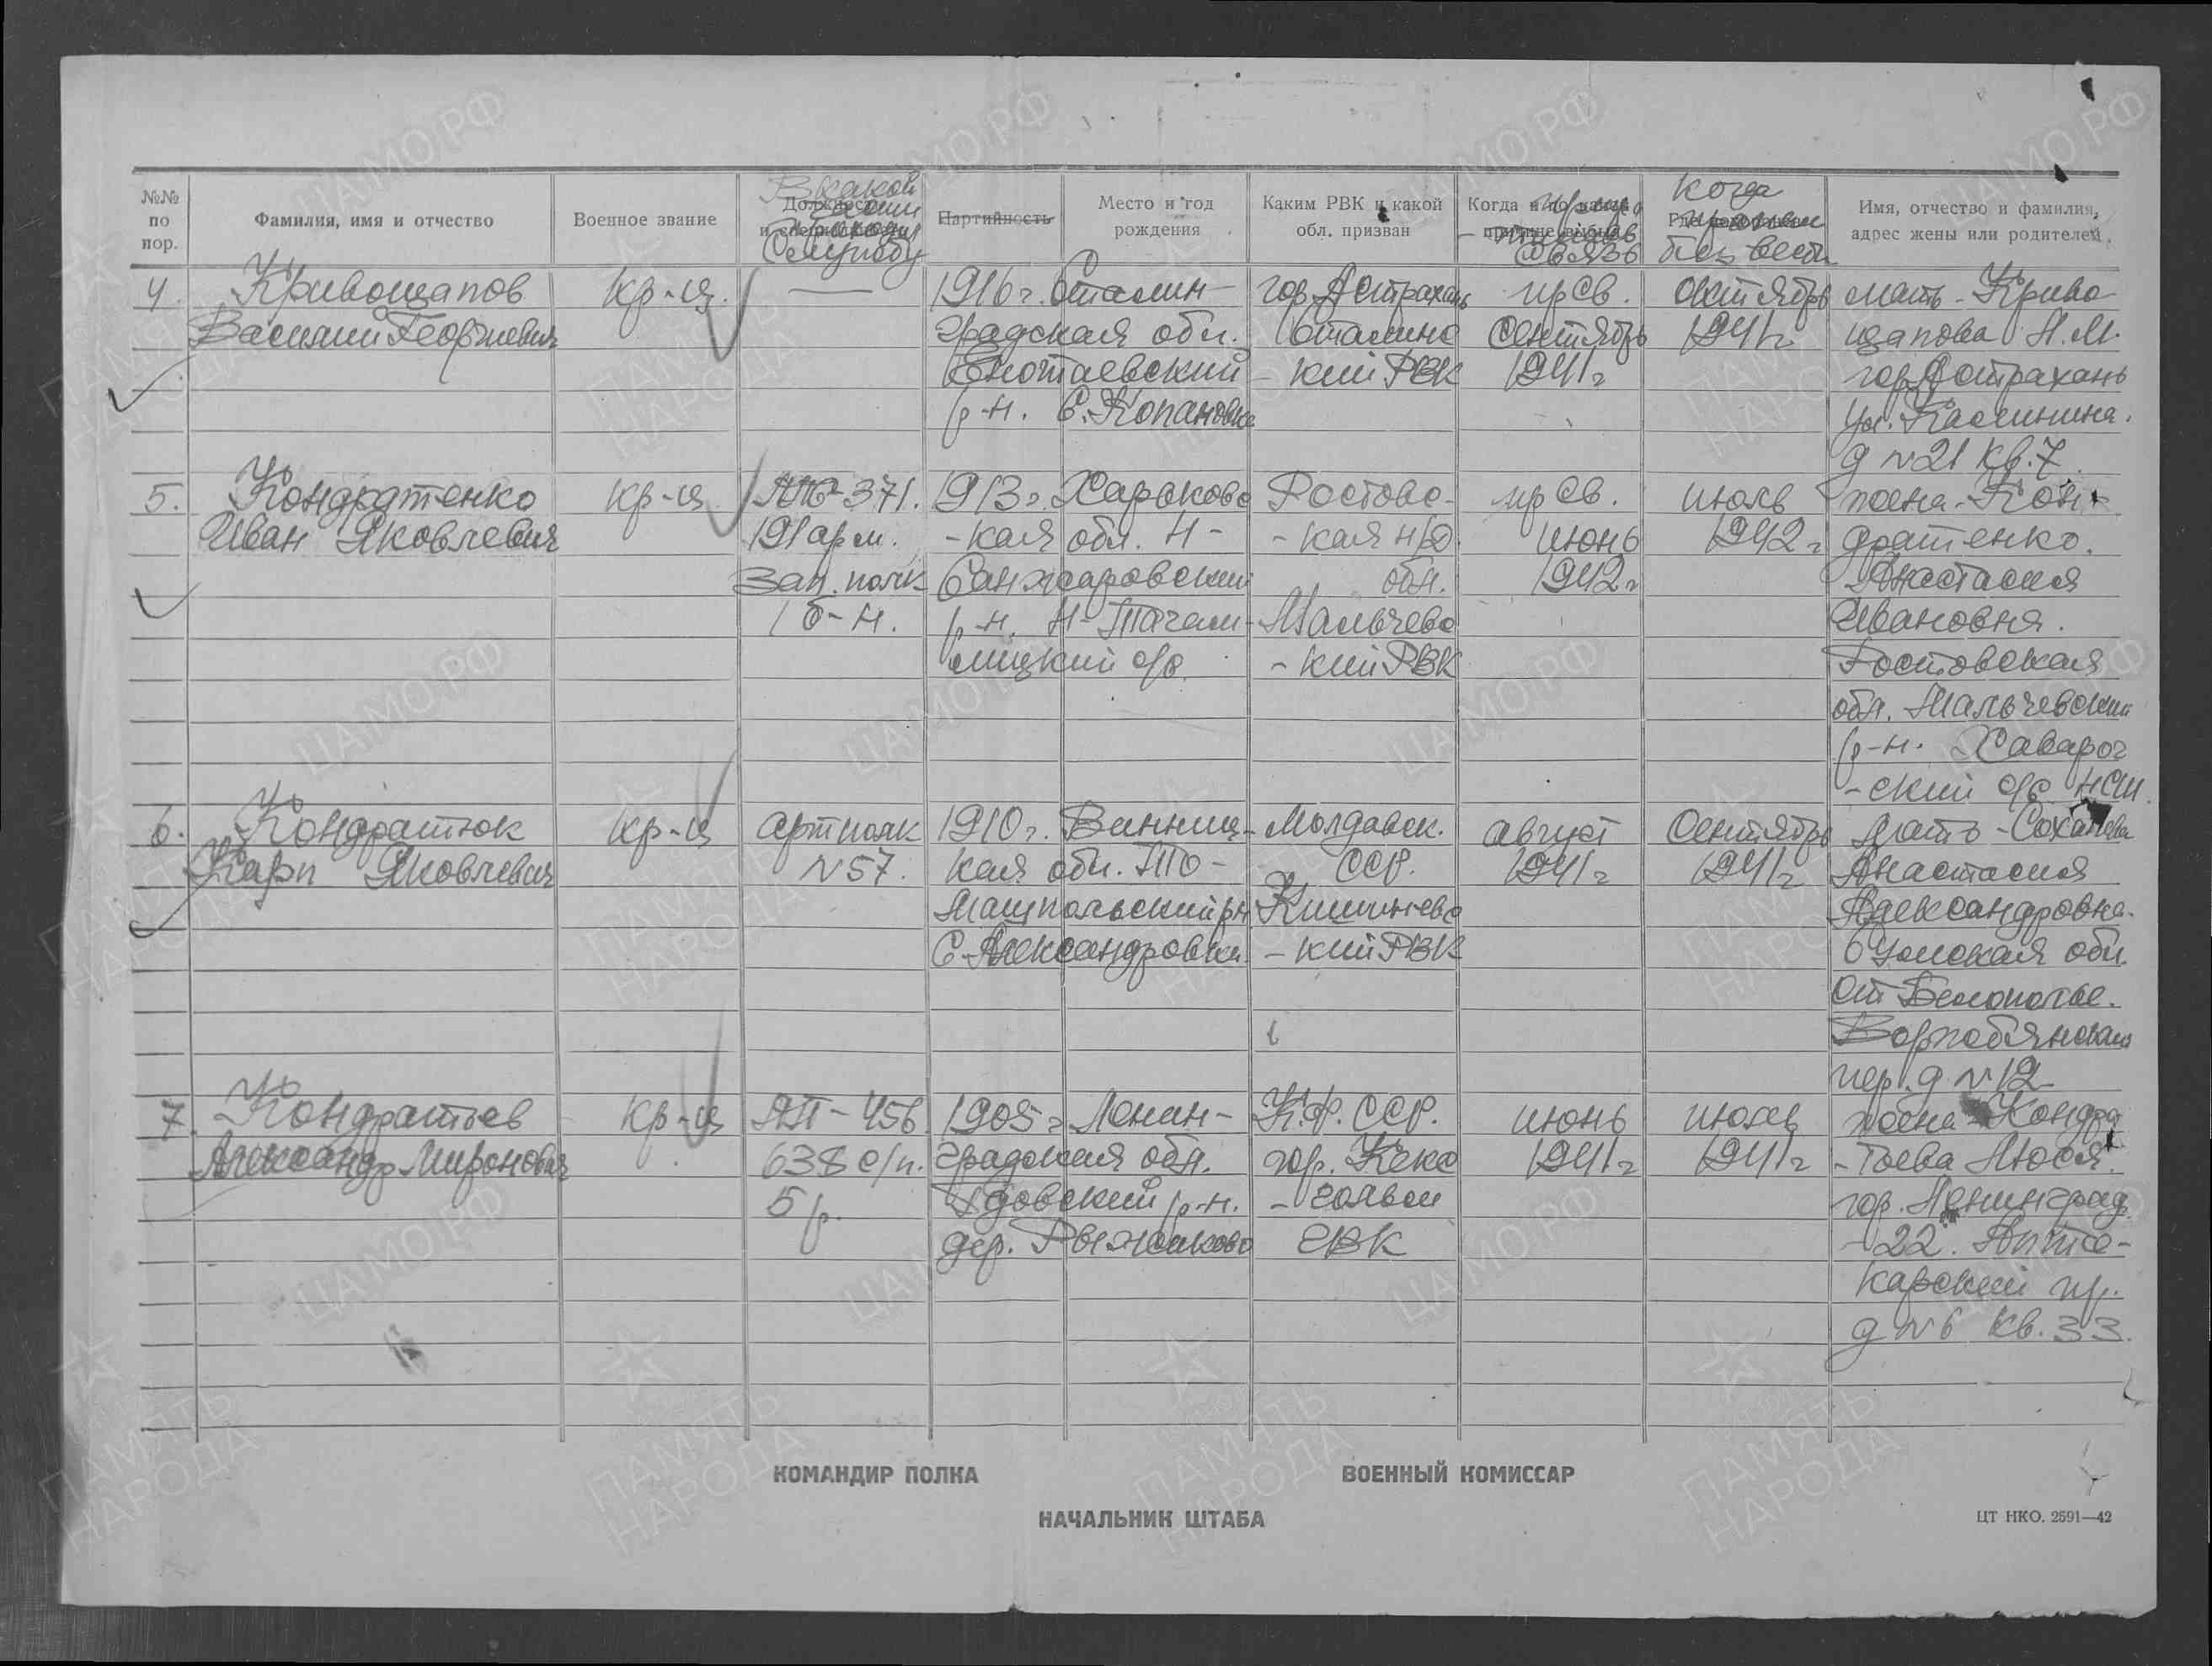 №№ по пор.
Фамилия, имя и отчество
Военное звание
Должность и специальность
В какой части проходил службу
Партийность
Место и год рождения
Каким РВК и какой обл. призван
Когда и по какой причине выбыл
прекр. связь
Где
Когда пропал без вести
Имя, отчество и фамилия, адрес жены или родителей
4.
Кривощапов
Василий Георгиевич
кр-ц.
—
1916 г. Сталин-
градская обл.
Енотаевский
р-н. С. Копановка
гор. Астрахань
Сталинс
-кий РВК
пр св.
Сентябрь
1941 г
октябрь
1941 г.
мать - Криво-
щапова Н.М.
гор Астрахань
ул. Калинина.
д №21 кв. 7.
5.
Кондратенко
Иван Яковлевич
кр-ц
ППС-371.
191 арм.
зап. полк
1 б-н.
1913 г. Харьковс
-кая обл. Н-
Санжаровский
р-н. Н-
лицкий с/с.
Ростовс-
-кая н/Д.
обл.
Мальчевс
-кий РВК
пр св.
июнь
1942 г
июль
1942 г
жена - Кон-
дратенко.
Анастасия
Ивановна.
Ростовская
обл. Мальчевский
р-н.
-ский с/с. НСШ.
6.
Кондратюк
Карп Яковлевич
кр-ц
артполк
№57.
1910 г. Винниц-
кая обл. То-
машпольский рн
С. Александровка
Молдавск.
ССР.
Кишиневс
-кий РВК
август
1941 г
Сентябрь
1941 г
мать -
Анастасия
Александровна.
Сумская обл.
ст Белополье.
пер. д №12
7.
Кондратьев
Александр Миронович
кр-ц
ПП-456.
638 с/п.
5 р.
1905 г Ленин-
градская обл.
Гдовский р-н.
дер.
К.Ф. ССР.
гор. Кекс
-гольм
ГВК
июнь
1941 г
июль
1941 г
жена - Кондра
-тьева Люся.
гор. Ленинград
-22. Апте-
карский пр.
д №6 кв. 33.
КОМАНДИР ПОЛКА
ВОЕННЫЙ КОМИССАР
НАЧАЛЬНИК ШТАБА
ЦТ НКО. 2591—42
ЦАМО.РФ
ПАМЯТЬ НАРОДА